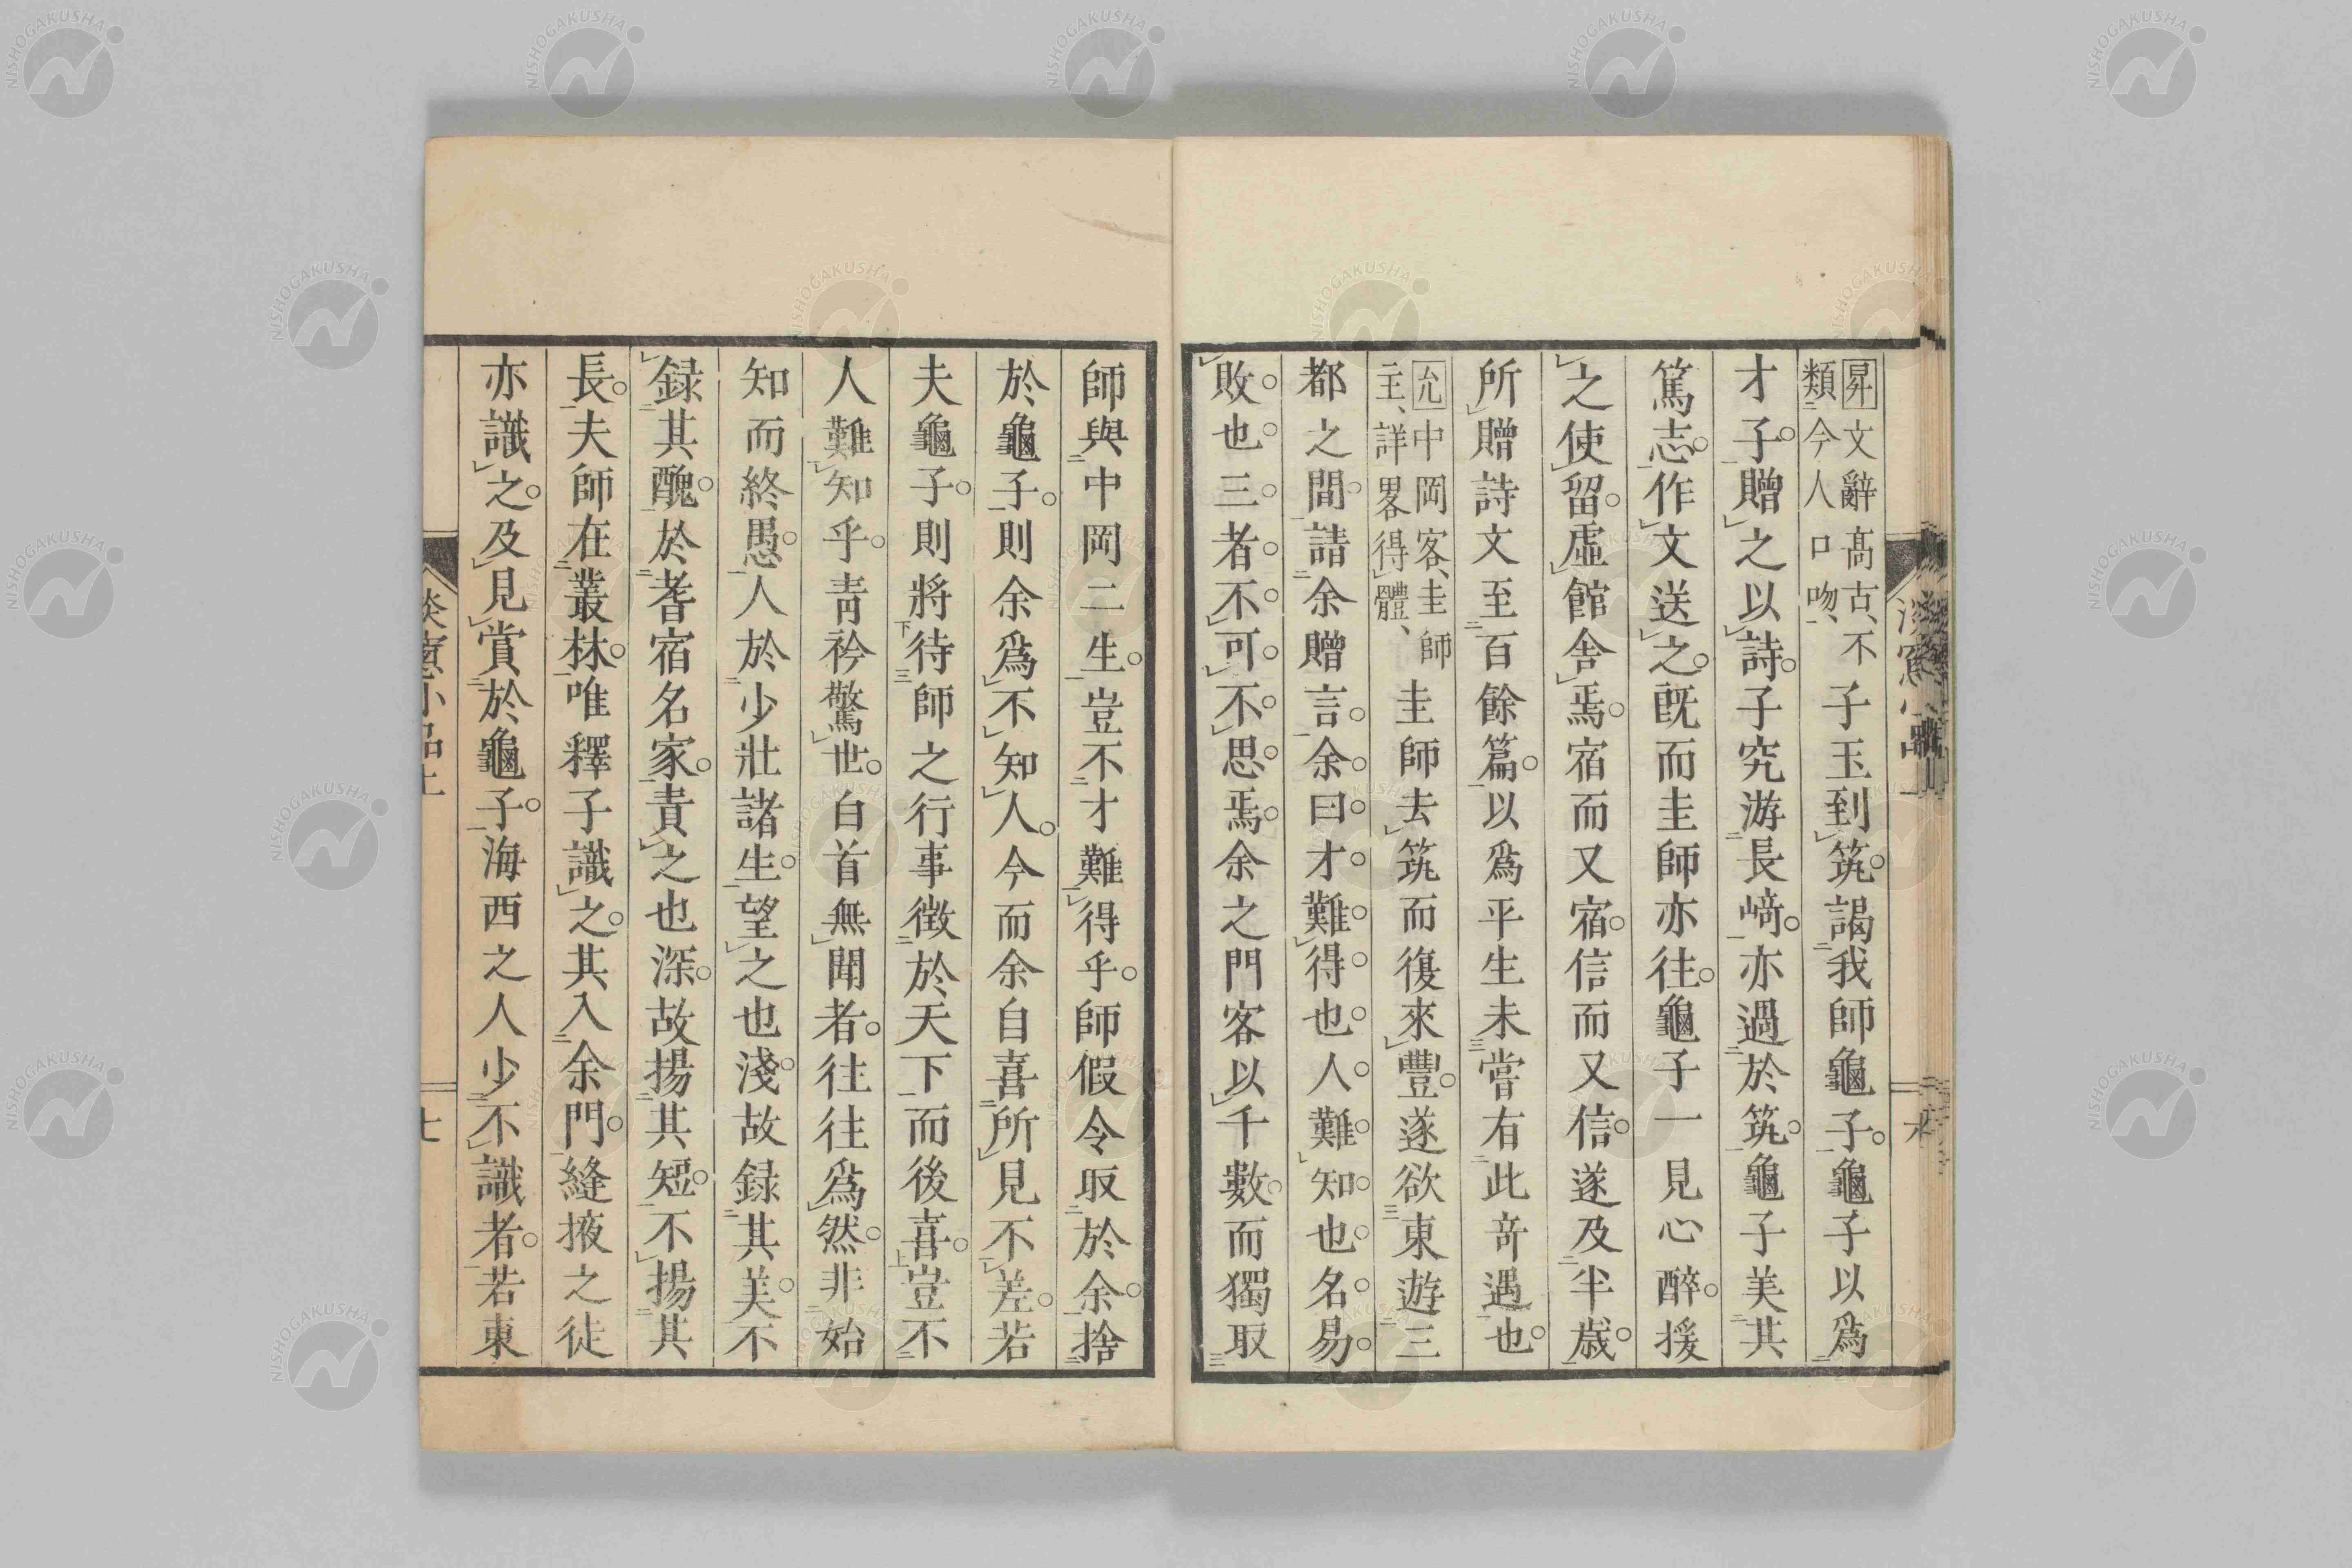 昇文辭高古、不類今人口吻、子玉到筑。謁我師龜子。龜子以爲
才子。贈之以詩。子究游長﨑。亦過於筑。龜子美其
篤志。作文送之。既而圭師亦往。龜子一見心醉。援
之使留。虛館舍焉。宿而又宿。信而又信。遂及半歲。
所贈詩文至百餘篇。以爲平生未嘗有此奇遇也。
允中岡客、圭師主、詳畧得體、圭師去筑而復來豐。遂欲東遊三
都之間。請余贈言。余曰。才。難。得。也。人。難。知。也。名。易。
敗。也。三。者。不。可。不。思。焉。余之門客以千數。而獨取
師與中岡二生。豈不才難得乎。師假令取於余。捨
於龜子。則余爲不知人。今而余自喜所見不差。若
夫龜子。則將待師之行事徵於天下而後喜。豈不
人難知乎。靑衿驚世。白首無聞者。往往爲然。非始
知而終愚。人於少壯諸生。望之也淺。故録其美。不
録其醜。於耆宿名家。責之也深。故揚其短。不揚其
長。夫師在叢林。唯釋子識之。其入余門。縫掖之徒
亦識之。及見賞於龜子。海西之人少不識者。若東
淡窻小品上
七